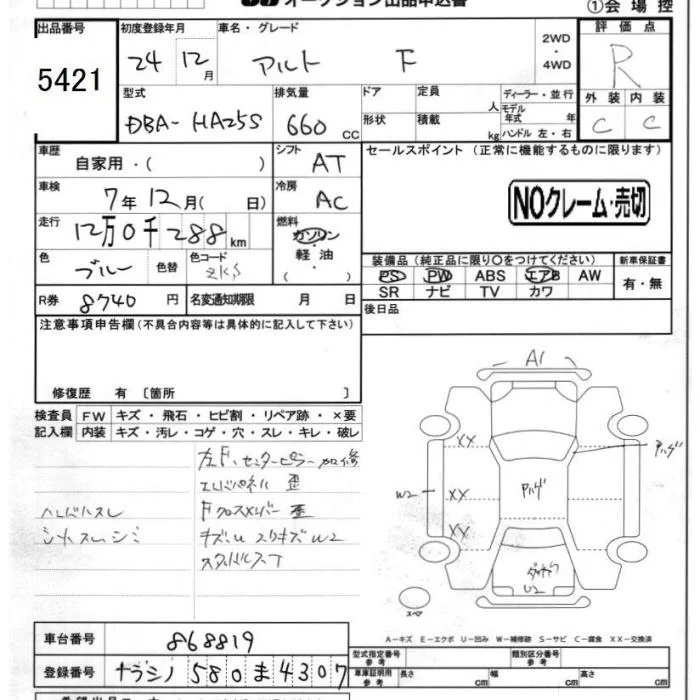 オークション出品申込書
①会場控
出品番号
5421
初度登録年月
24 12月
車名・グレード
アルト F
2WD
・
4WD
評価点
R
型式
DBA-HA25S
排気量
660 CC
ドア
定員
人
形状
積載
kg
ディーラー・並行
モデル年式 年
ハンドル 左・右
外装 内装
C C
車歴
自家用・( )
シフト
AT
セールスポイント (正常に機能するものに限ります)
NOクレーム・売切
車検
7年12月( 日)
冷房
AC
走行
12万0千288km
燃料
ガソリン
軽油
( ・ )
色
ブルー
色替
色コード
ZKS
装備品 (純正品に限り○をつけてください)
PS PW ABS エアB AW
SR ナビ TV カワ
新車保証書
有・無
R券 8740円
名変通知期限 月 日
後日品
注意事項申告欄(不具合内容等は具体的に記入して下さい)
修復歴 有 〔箇所 〕
検査員記入欄
FW キズ・飛石・ヒビ割・リペア跡・×要
内装 キズ・汚レ・コゲ・穴・スレ・キレ・破レ
左F、センターピラー 加修
エンドパネル 歪
ハンドルスレ
Fクロスメンバー 歪
シートスレシミ
キズU スリキズW2
スタッドレスT
A1
XX
アハゲ
W2
XX
Aハゲ
XX
U2
スペア
A-キズ E-エクボ U-凹み W-補修跡 S-サビ C-腐食 XX-交換済
車台番号
868819
登録番号
ナラシノ 580 ま 4307
型式指定番号
参考
類別区分番号
参考
車庫証明用
参考
長さ cm
幅 cm
高さ cm